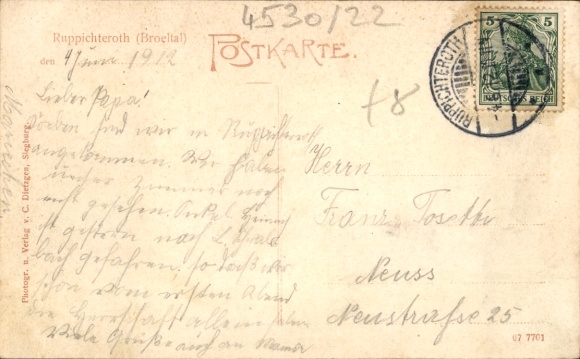 4530/22
Ruppichteroth (Broeltal)
POSTKARTE.
den 4 Juni 1912
5 5
DEUTSCHES REICH
RUPPICHTEROTH
+8
Lieber Papa!
Soeben sind wir in Ruppichteroth
angekommen. Wir haben
unser Zimmer noch
nicht gesehen. Onkel Heinrich
ist gestern nach
bach gefahren. so daß wir
schon vom ersten Abend
die Herrschaft allein haben
Viele Grüße auch an Mama
Herrn
Franz Josetti
Neuss
Neustraße 25
Photogr. u. Verlag v. C. Dietzgen, Siegburg.
07 7701